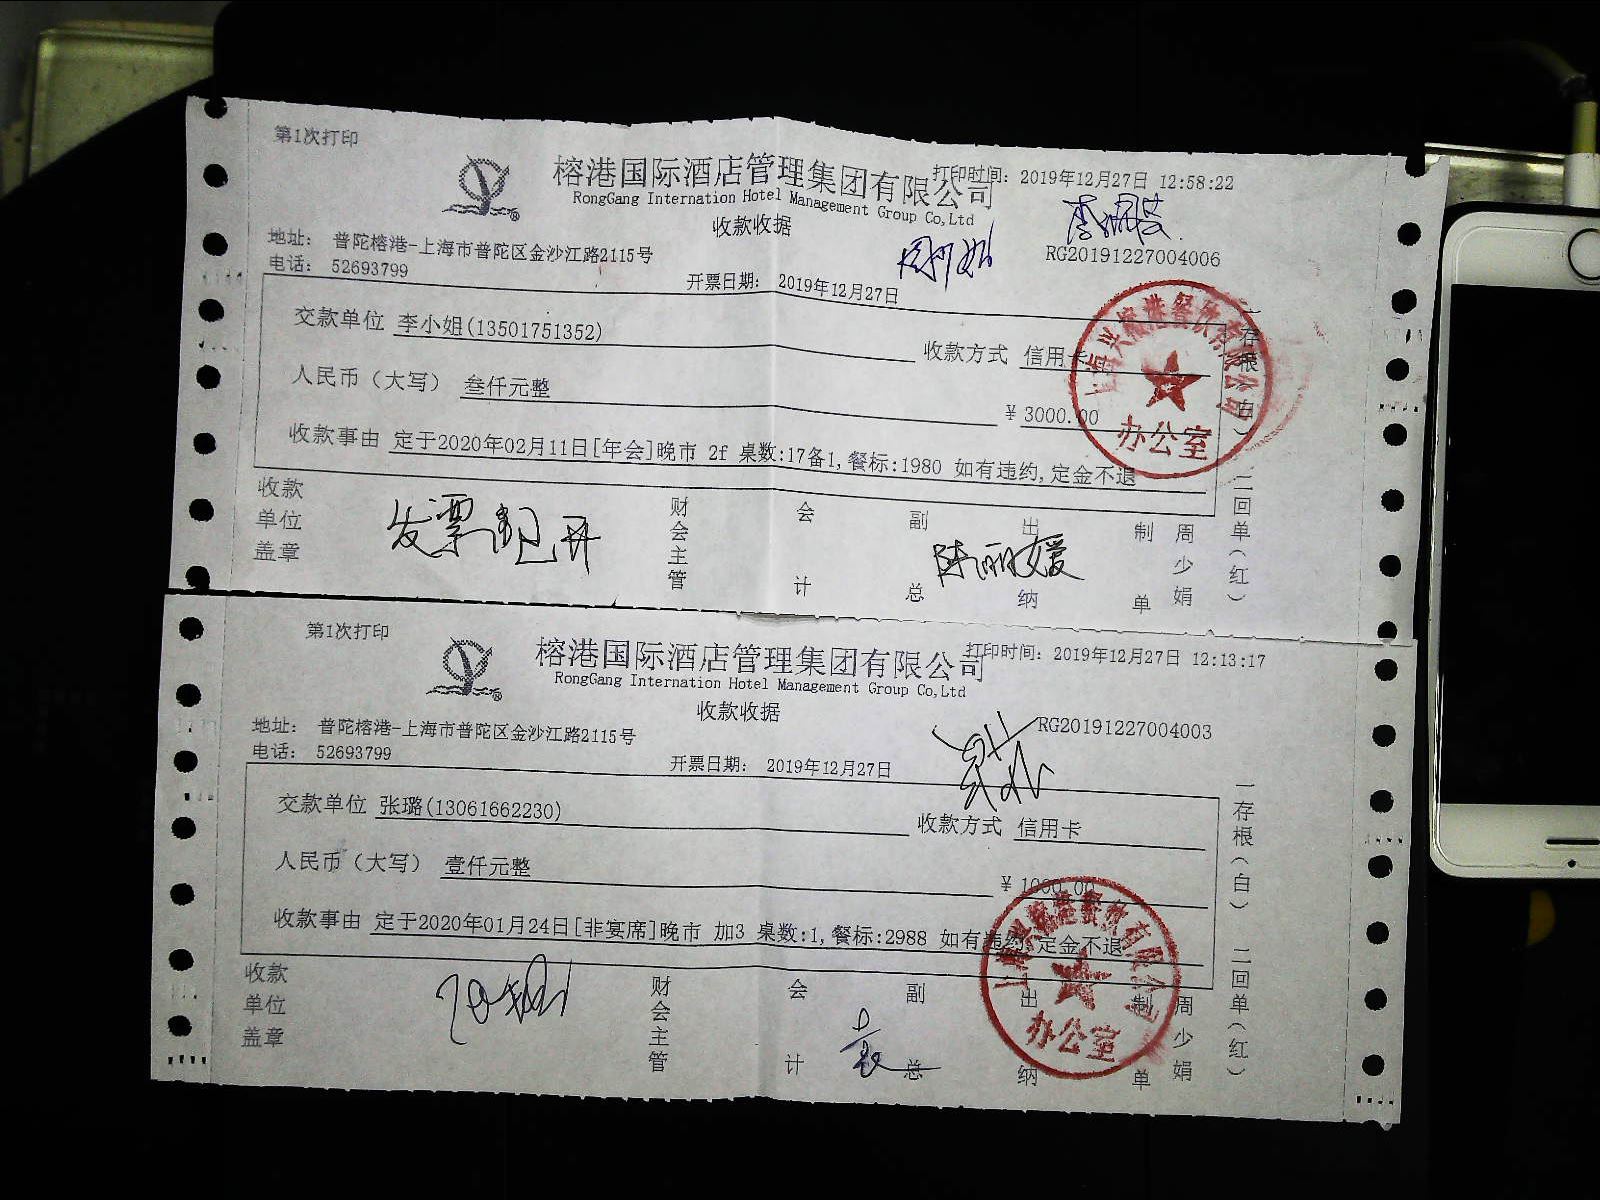 第1次打印
榕港国际酒店管理集团有限公司
打印时间: 2019年12月27日 12:58:22
RongGang Internation Hotel Management Group Co,Ltd
收款收据
地址: 普陀榕港-上海市普陀区金沙江路2115号
RG20191227004006
电话: 52693799
开票日期: 2019年12月27日
交款单位 李小姐(13501751352)
收款方式 信用卡
人民币（大写） 叁仟元整
￥3000.00
收款事由 定于2020年02月11日[年会]晚市 2f 桌数:17备1,餐标:1980 如有违约,定金不退
一存根(白) 二回单(红)
上海兴榕港餐饮有限公司
办公室
收款单位盖章
发票已开
财会主管
会计
副总
陈丽媛
出纳
制单
周少娟
第1次打印
榕港国际酒店管理集团有限公司
打印时间: 2019年12月27日 12:13:17
RongGang Internation Hotel Management Group Co,Ltd
收款收据
地址: 普陀榕港-上海市普陀区金沙江路2115号
RG20191227004003
电话: 52693799
开票日期: 2019年12月27日
交款单位 张璐(13061662230)
收款方式 信用卡
人民币（大写） 壹仟元整
￥1000.00
收款事由 定于2020年01月24日[非宴席]晚市 加3 桌数:1,餐标:2988 如有违约,定金不退
一存根(白) 二回单(红)
上海兴榕港餐饮有限公司
办公室
收款单位盖章
财会主管
会计
副总
出纳
制单
周少娟